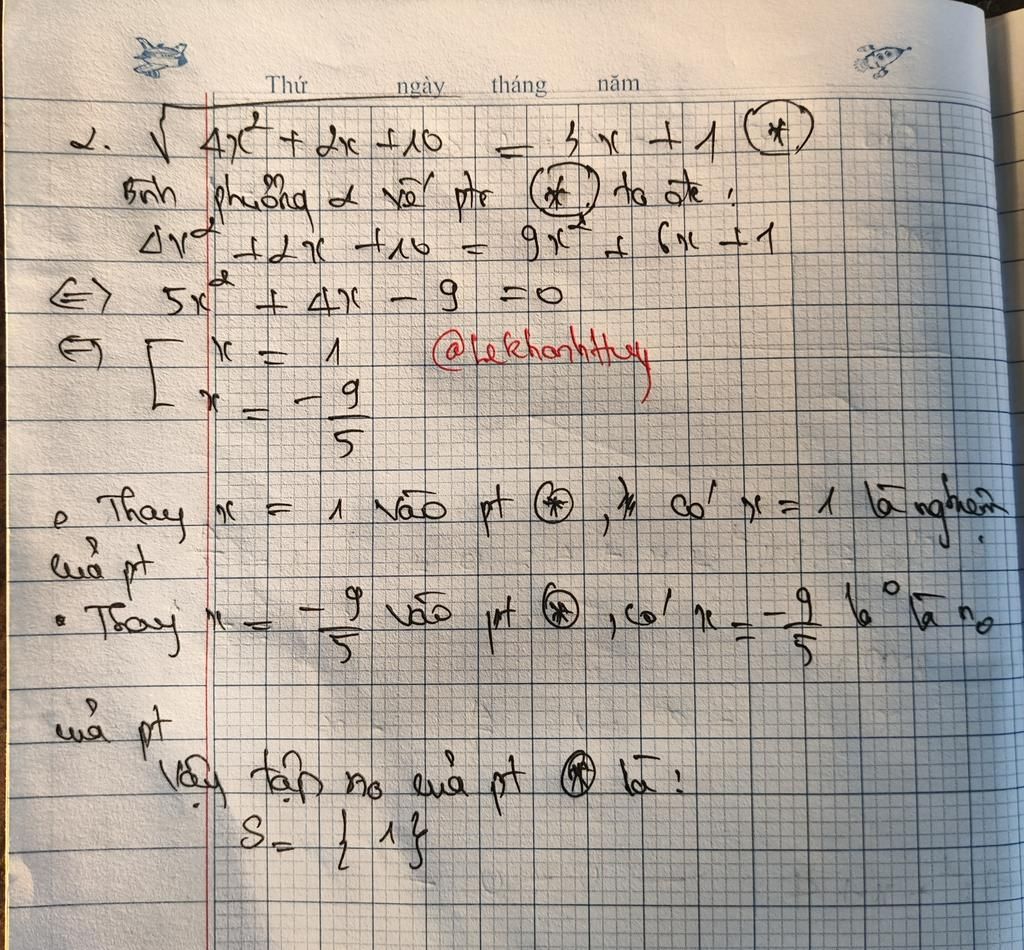 Thứ ngày tháng năm
2. √4x² + 2x + 10 = 3x + 1 (*)
Bình phương 2 vế ptr (*) ta đc :
4x² + 2x + 10 = 9x² + 6x + 1
<=> 5x² + 4x - 9 = 0
<=> [ x = 1
x = -9/5
@LekhanhHuy
• Thay x = 1 vào pt (*), có x = 1 là nghiệm
của pt
• Thay x = -9/5 vào pt (*), có x = -9/5 k° là no
của pt
Vậy tập no của pt (*) là :
S = { 1 }